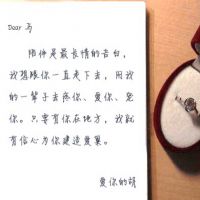 Dear 马
陪伴是最长情的告白，
我想跟你一直走下去，用我
的一辈子去疼你、爱你、宠
你。只要有你在地方，我就
有信心为你建造爱巢。
爱你的胡